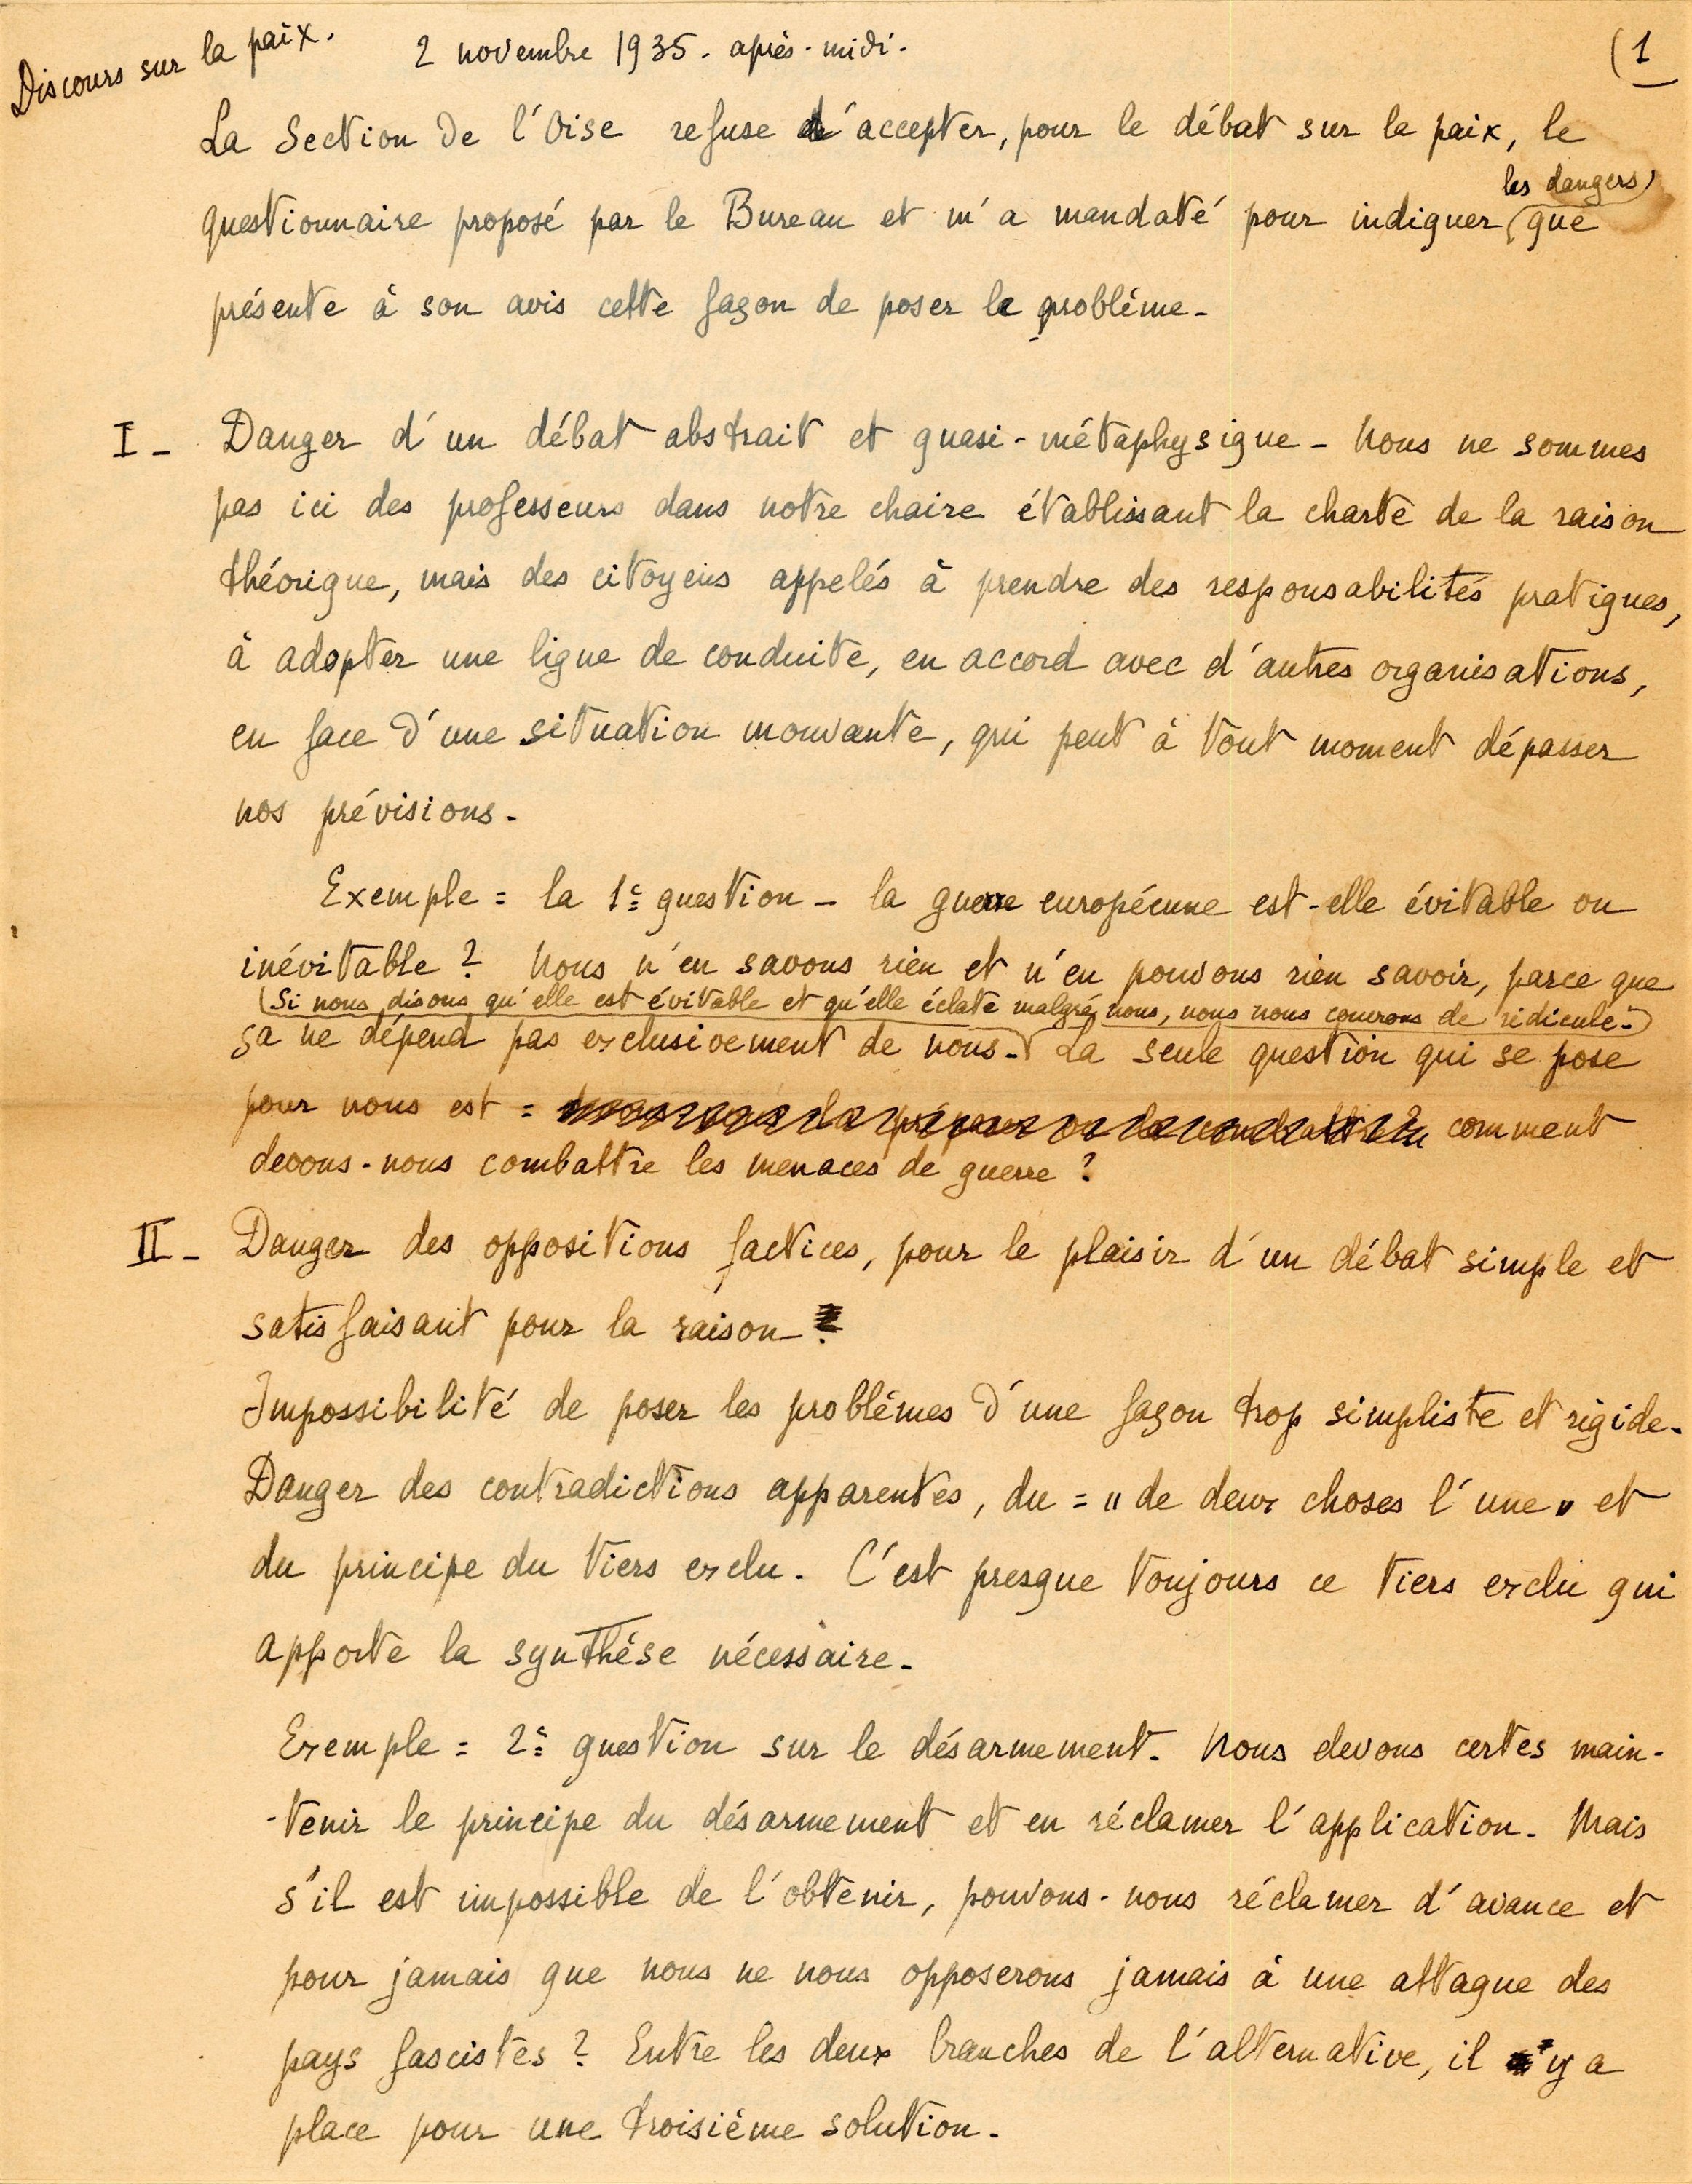 Discours sur la paix.
2 novembre 1935. après-midi.
(1
La Section de l'Oise refuse d'accepter, pour le débat sur la paix, le
les dangers
questionnaire proposé par le Bureau et m'a mandaté pour indiquer que
présente à son avis cette façon de poser le problème -
I - Danger d'un débat abstrait et quasi-métaphysique - Nous ne sommes
pas ici des professeurs dans notre chaire établissant la charte de la raison
théorique, mais des citoyens appelés à prendre des responsabilités pratiques,
à adopter une ligne de conduite, en accord avec d'autres organisations,
en face d'une situation mouvante, qui peut à tout moment dépasser
nos prévisions.
Exemple = la 1e question - la guerre européenne est-elle évitable ou
inévitable ? Nous n'en savons rien et n'en pouvons rien savoir, parce que
(Si nous disons qu'elle est évitable et qu'elle éclate malgré nous, nous nous couvrons de ridicule.)
ça ne dépend pas exclusivement de nous - La seule question qui se pose
pour nous est = comment
devons-nous combattre les menaces de guerre ?
II - Danger des oppositions factices, pour le plaisir d'un débat simple et
satisfaisant pour la raison
Impossibilité de poser les problèmes d'une façon trop simpliste et rigide.
Danger des contradictions apparentes, du = "de deux choses l'une" et
du principe du tiers exclu. C'est presque toujours ce tiers exclu qui
apporte la synthèse nécessaire.
Exemple = 2e question sur le désarmement. Nous devons certes main-
-tenir le principe du désarmement et en réclamer l'application. Mais
s'il est impossible de l'obtenir, pouvons-nous réclamer d'avance et
pour jamais que nous ne nous opposerons jamais à une attaque des
pays fascistes ? Entre les deux branches de l'alternative, il y a
place pour une troisième solution.